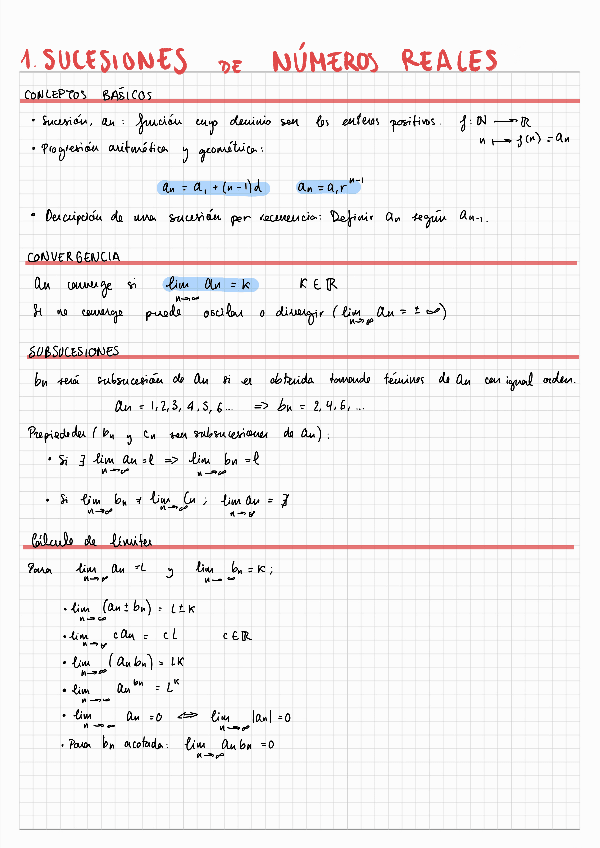 1. SUCESIONES DE NÚMEROS REALES
CONCEPTOS BÁSICOS
• Sucesión, an: función cuyo dominio son los enteros positivos. f: ℕ → ℝ
n ↦ f(n) = an
• Progresión aritmética y geométrica:
an = a1 + (n-1)d   an = a1 r^(n-1)
• Descripción de una sucesión por recurrencia: Definir an según an-1.
CONVERGENCIA
an converge si lim n→∞ an = k   K ∈ ℝ
Si no converge puede oscilar o divergir (lim n→∞ an = ± ∞)
SUBSUCESIONES
bn será subsucesión de an si es obtenida tomando términos de an con igual orden.
an = 1,2,3, 4,5,6... => bn = 2,4,6, ...
Propiedades (bn y cn son subsucesiones de an):
• Si ∃ lim n→∞ an = l => lim n→∞ bn = l
• Si lim n→∞ bn ≠ lim n→∞ Cn ; lim n→∞ an = ∄
Cálculo de límites
Para lim n→∞ an = L y lim n→∞ bn = K;
• lim n→∞ (an ± bn) = L ± K
• lim n→∞ c an = c L   c ∈ ℝ
• lim n→∞ (an bn) = LK
• lim n→∞ an^bn = L^K
• lim n→∞ an = 0 ⇔ lim n→∞ |an| = 0
• Para bn acotada: lim n→∞ an bn = 0